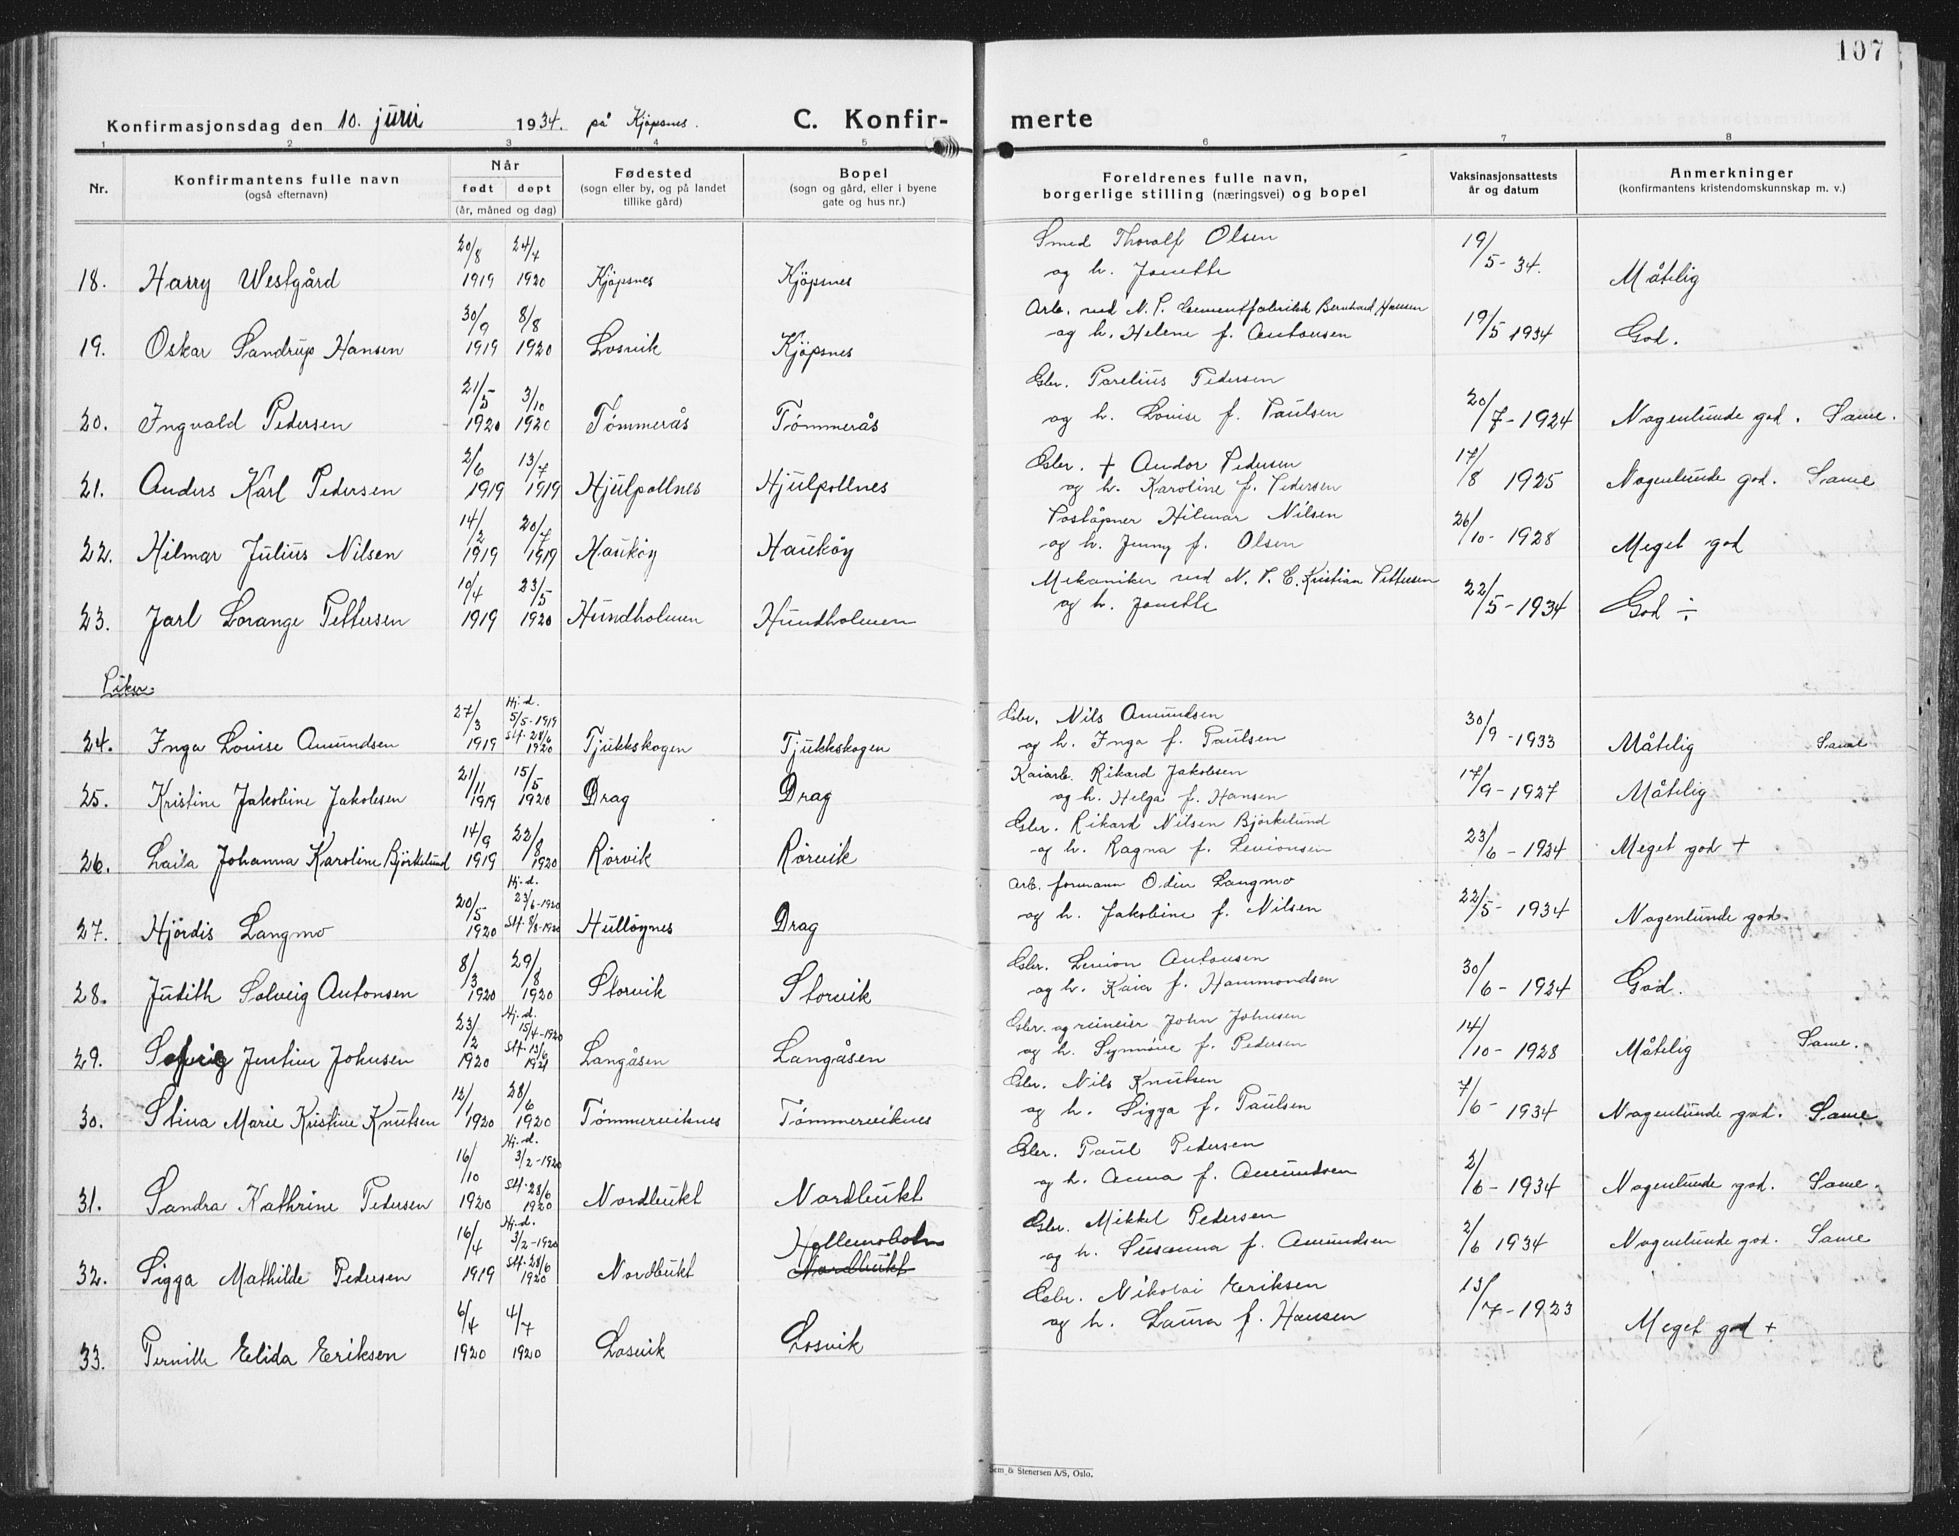 107
Konfirmasjonsdag den 10. juni 1934. på Kjöpsnes. C. Konfir- merte
1 2 3 4 5 6 7 8
Nr. Konfirmantens fulle navn (også efternavn) Når født døpt (år, måned og dag) Fødested (sogn eller by, og på landet tillike gård) Bopel (sogn og gård, eller i byene gate og hus nr.) Foreldrenes fulle navn, borgerlige stilling (næringsvei) og bopel Vaksinasjonsattests år og datum Anmerkninger (konfirmantens kristendomskunnskap m. v.)
18. Harry Westgård 20/8 1919 24/4 1920 Kjöpsnes Kjöpsnes Smed Thoralf Olsen og h. Jonette 19/5-34. Måtelig
19. Oskar Sandrup Hansen 30/9 1919 8/8 1920 Losvik Kjöpsnes Arb. ved N. P. Cementfabrikk Bernhard Hansen og h. Helene f. Antonsen 19/5 1934 God.
20. Ingvald Pedersen 21/5 1920 3/10 1920 Tømmerås Tømmerås Gbr. Parelius Pedersen og h. Louise f. Paulsen 20/7-1924 Nogenlunde god. Same.
21. Anders Karl Pedersen 2/6 1919 13/7 1919 Hjulpollnes Hjulpollnes Gbr. + Andor Pedersen og h. Karoline f. Pedersen 17/8 1925 Nogenlunde god. Same
22. Hilmar Julius Nilsen 14/2 1919 20/7 1919 Hauköy Hauköy Poståpner Hilmar Nilsen og h. Jenny f. Olsen 26/10-1928 Meget god
23. Jarl Lorange Pettersen 10/4 1919 23/5 1920 Hundholmen Hundholmen Mekaniker ved N. P. C. Kristian Pettersen og h. Jonette 22/5-1934 God ÷
Piker.
24. Inga Louise Amundsen 27/3 1919 Hj.d. 5/5-1919 Stf. 28/6 1920 Tjukkskogen Tjukkskogen Gbr. Nils Amundsen og h. Inga f. Paulsen 30/9-1933 Måtelig Same
25. Kristine Jakobine Jakobsen 21/11 1919 15/5 1920 Drag Drag Kaiarb. Rikard Jakobsen og h. Helga f. Hansen 17/9-1927 Måtelig
26. Laila Johanna Karoline Björkelund 14/9 1919 22/8 1920 Rørvik Rørvik Gbr. Rikard Nilsen Björkelund og h. Ragna f. Levionsen 23/6-1924 Meget god +
27. Hjördis Langmo 20/5 1920 Hj.d. 23/6-1920 Stf. 8/8-1920 Hulløynes Drag Arb. formann Odin Langmo og h. Jakobine f. Nilsen 22/5-1934 Nogenlunde god.
28. Judith Solveig Antonsen 8/3 1920 29/8 1920 Storvik Storvik Gbr. Levion Antonsen og h. Kaia f. Hammondsen 30/6-1924 God.
29. Solveig Jentine Johnsen 23/2 1920 Hj.d. 15/4-1920 Stf. 13/6 1921 Langåsen Langåsen Gbr. og reineier John Johnsen og h. Synnöve f. Pedersen 14/10-1928 Måtelig Same.
30. Stina Marie Kristine Knutsen 12/1 1920 28/6 1920 Tømmerviknes Tømmerviknes Gbr. Nils Knutsen og h. Sigga f. Paulsen 7/6-1934 Nogenlunde god. Same
31. Sandra Kathrine Pedersen 16/10 1920 Hj.d. 3/2-1920 Stf. 28/6 1920 Nordbukt Nordbukt Gbr. Paul Pedersen og h. Anna f. Amundsen 2/6-1934 Nogenlunde god. Same.
32. Sigga Mathilde Pedersen 16/4 1919 Hj.d. 3/2-1920 Stf. 28/6 1920 Nordbukt Hellemobotn Nordbukt Gbr. Mikkel Pedersen og h. Susanna f. Amundsen 2/6 1934 Nogenlunde god. Same
33. Pernille Elida Eriksen 6/4 1920 4/7 1920 Losvik Losvik Gbr. Nikolai Eriksen og h. Laura f. Hansen 13/7-1923 Meget god +
Sem & Stenersen A/S, Oslo.